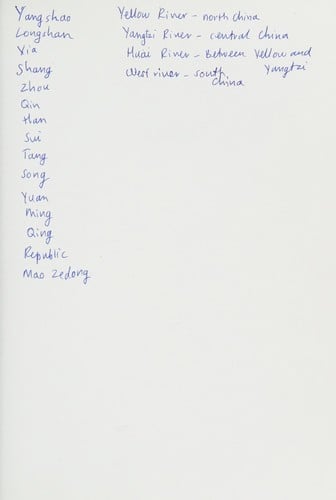 Yangshao
Longshan
Xia
Shang
Zhou
Qin
Han
Sui
Tang
Song
Yuan
Ming
Qing
Republic
Mao Zedong
Yellow River - north china
Yangtzi River - central China
Huai River - Between Yellow and
Yangtzi
West river - south
China